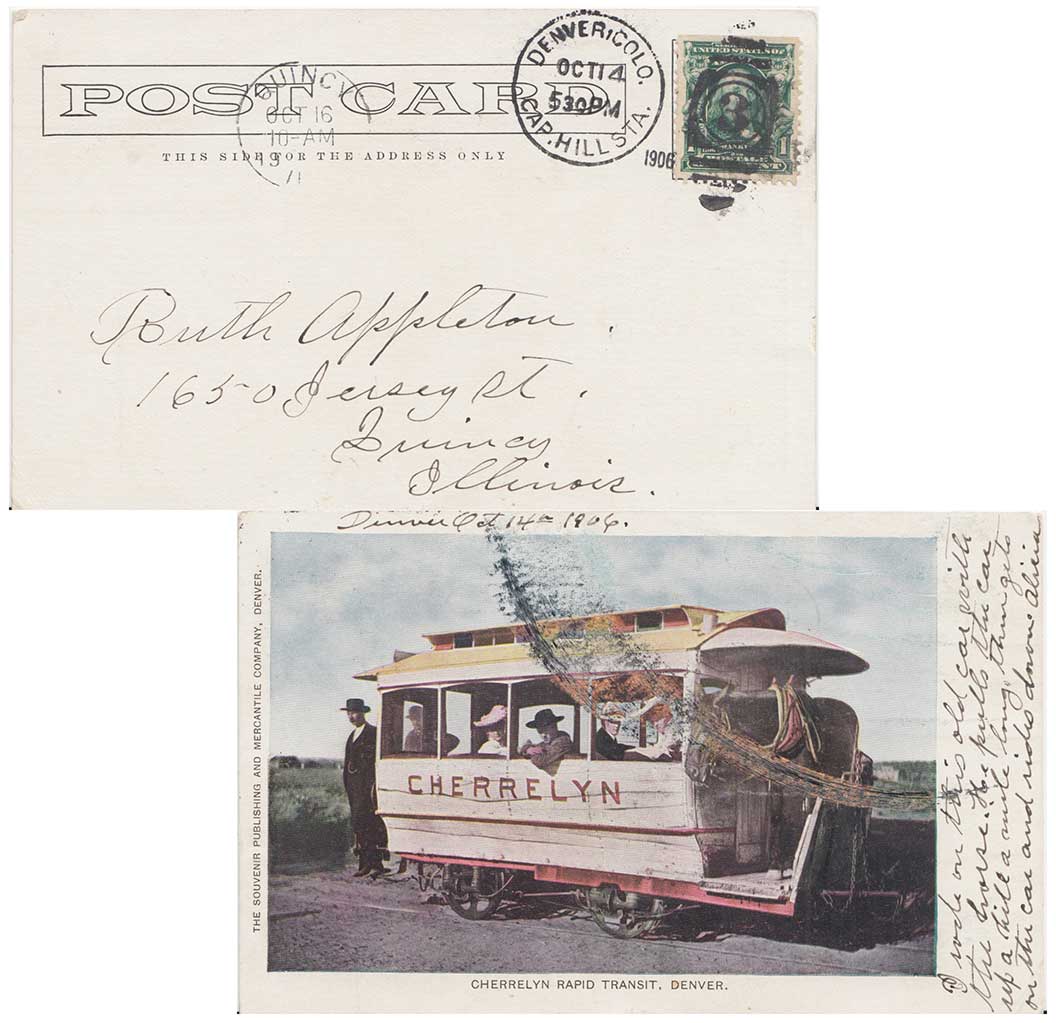 POST CARD
THIS SIDE FOR THE ADDRESS ONLY
QUINCY
OCT 16
10-AM
19
DENVER, COLO.
OCT 14
530PM
CAP. HILL STA.
1906
3
UNITED STATES
1
Ruth Appleton.
1650 Jersey St.
Quincy
Illinois.
Denver Oct 14th 1906.
THE SOUVENIR PUBLISHING AND MERCANTILE COMPANY, DENVER.
CHERRELYN
CHERRELYN RAPID TRANSIT, DENVER.
I rode on this old car with
the horse. He pulls the car
up a hill a mile long, then gets
on the car and rides down. Alicia